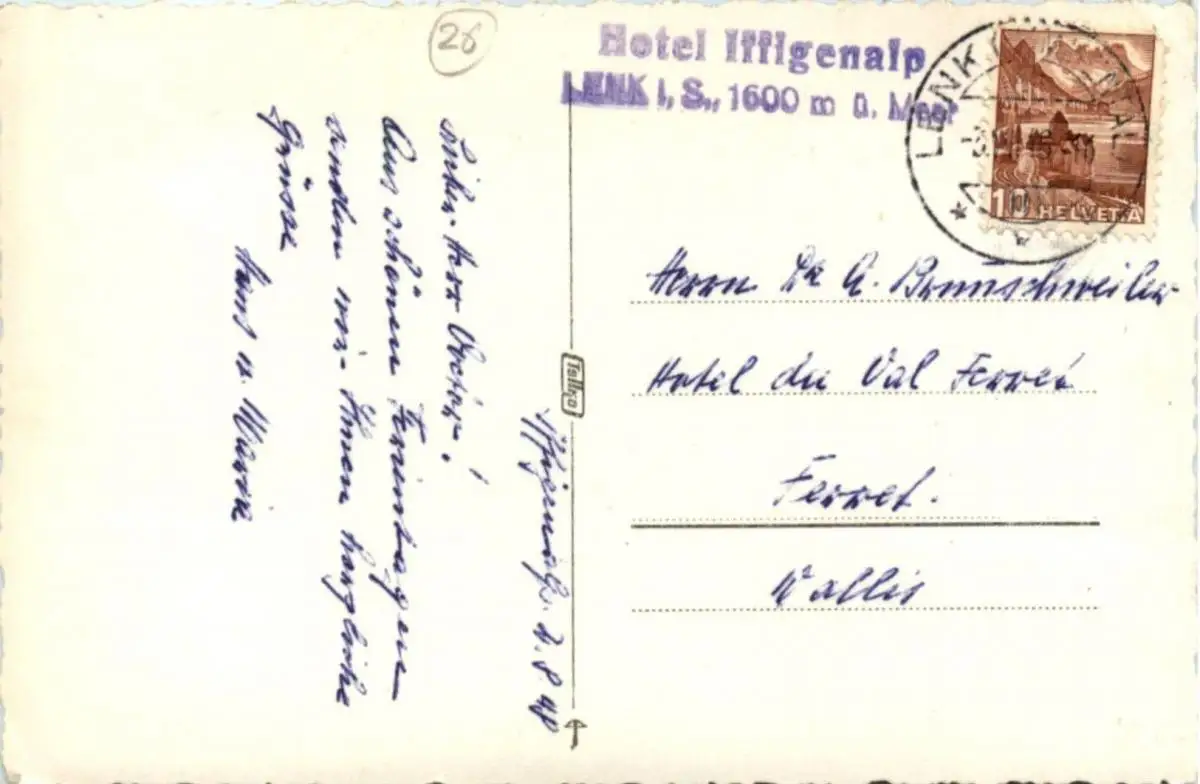 26
Hotel Iffigenalp
LENK i. S., 1600 m ü. Meer
LENK
10 HELVETIA
Iffigenalp. 2. 8. 48
Lieber Herr Doctor!
Aus schönen Ferientagen
senden wir Ihnen herzliche
Grüsse
Hans u. Marie
Tellko
Herrn Dr A. Brunschweiler
Hotel du Val Ferret
Ferret.
Wallis